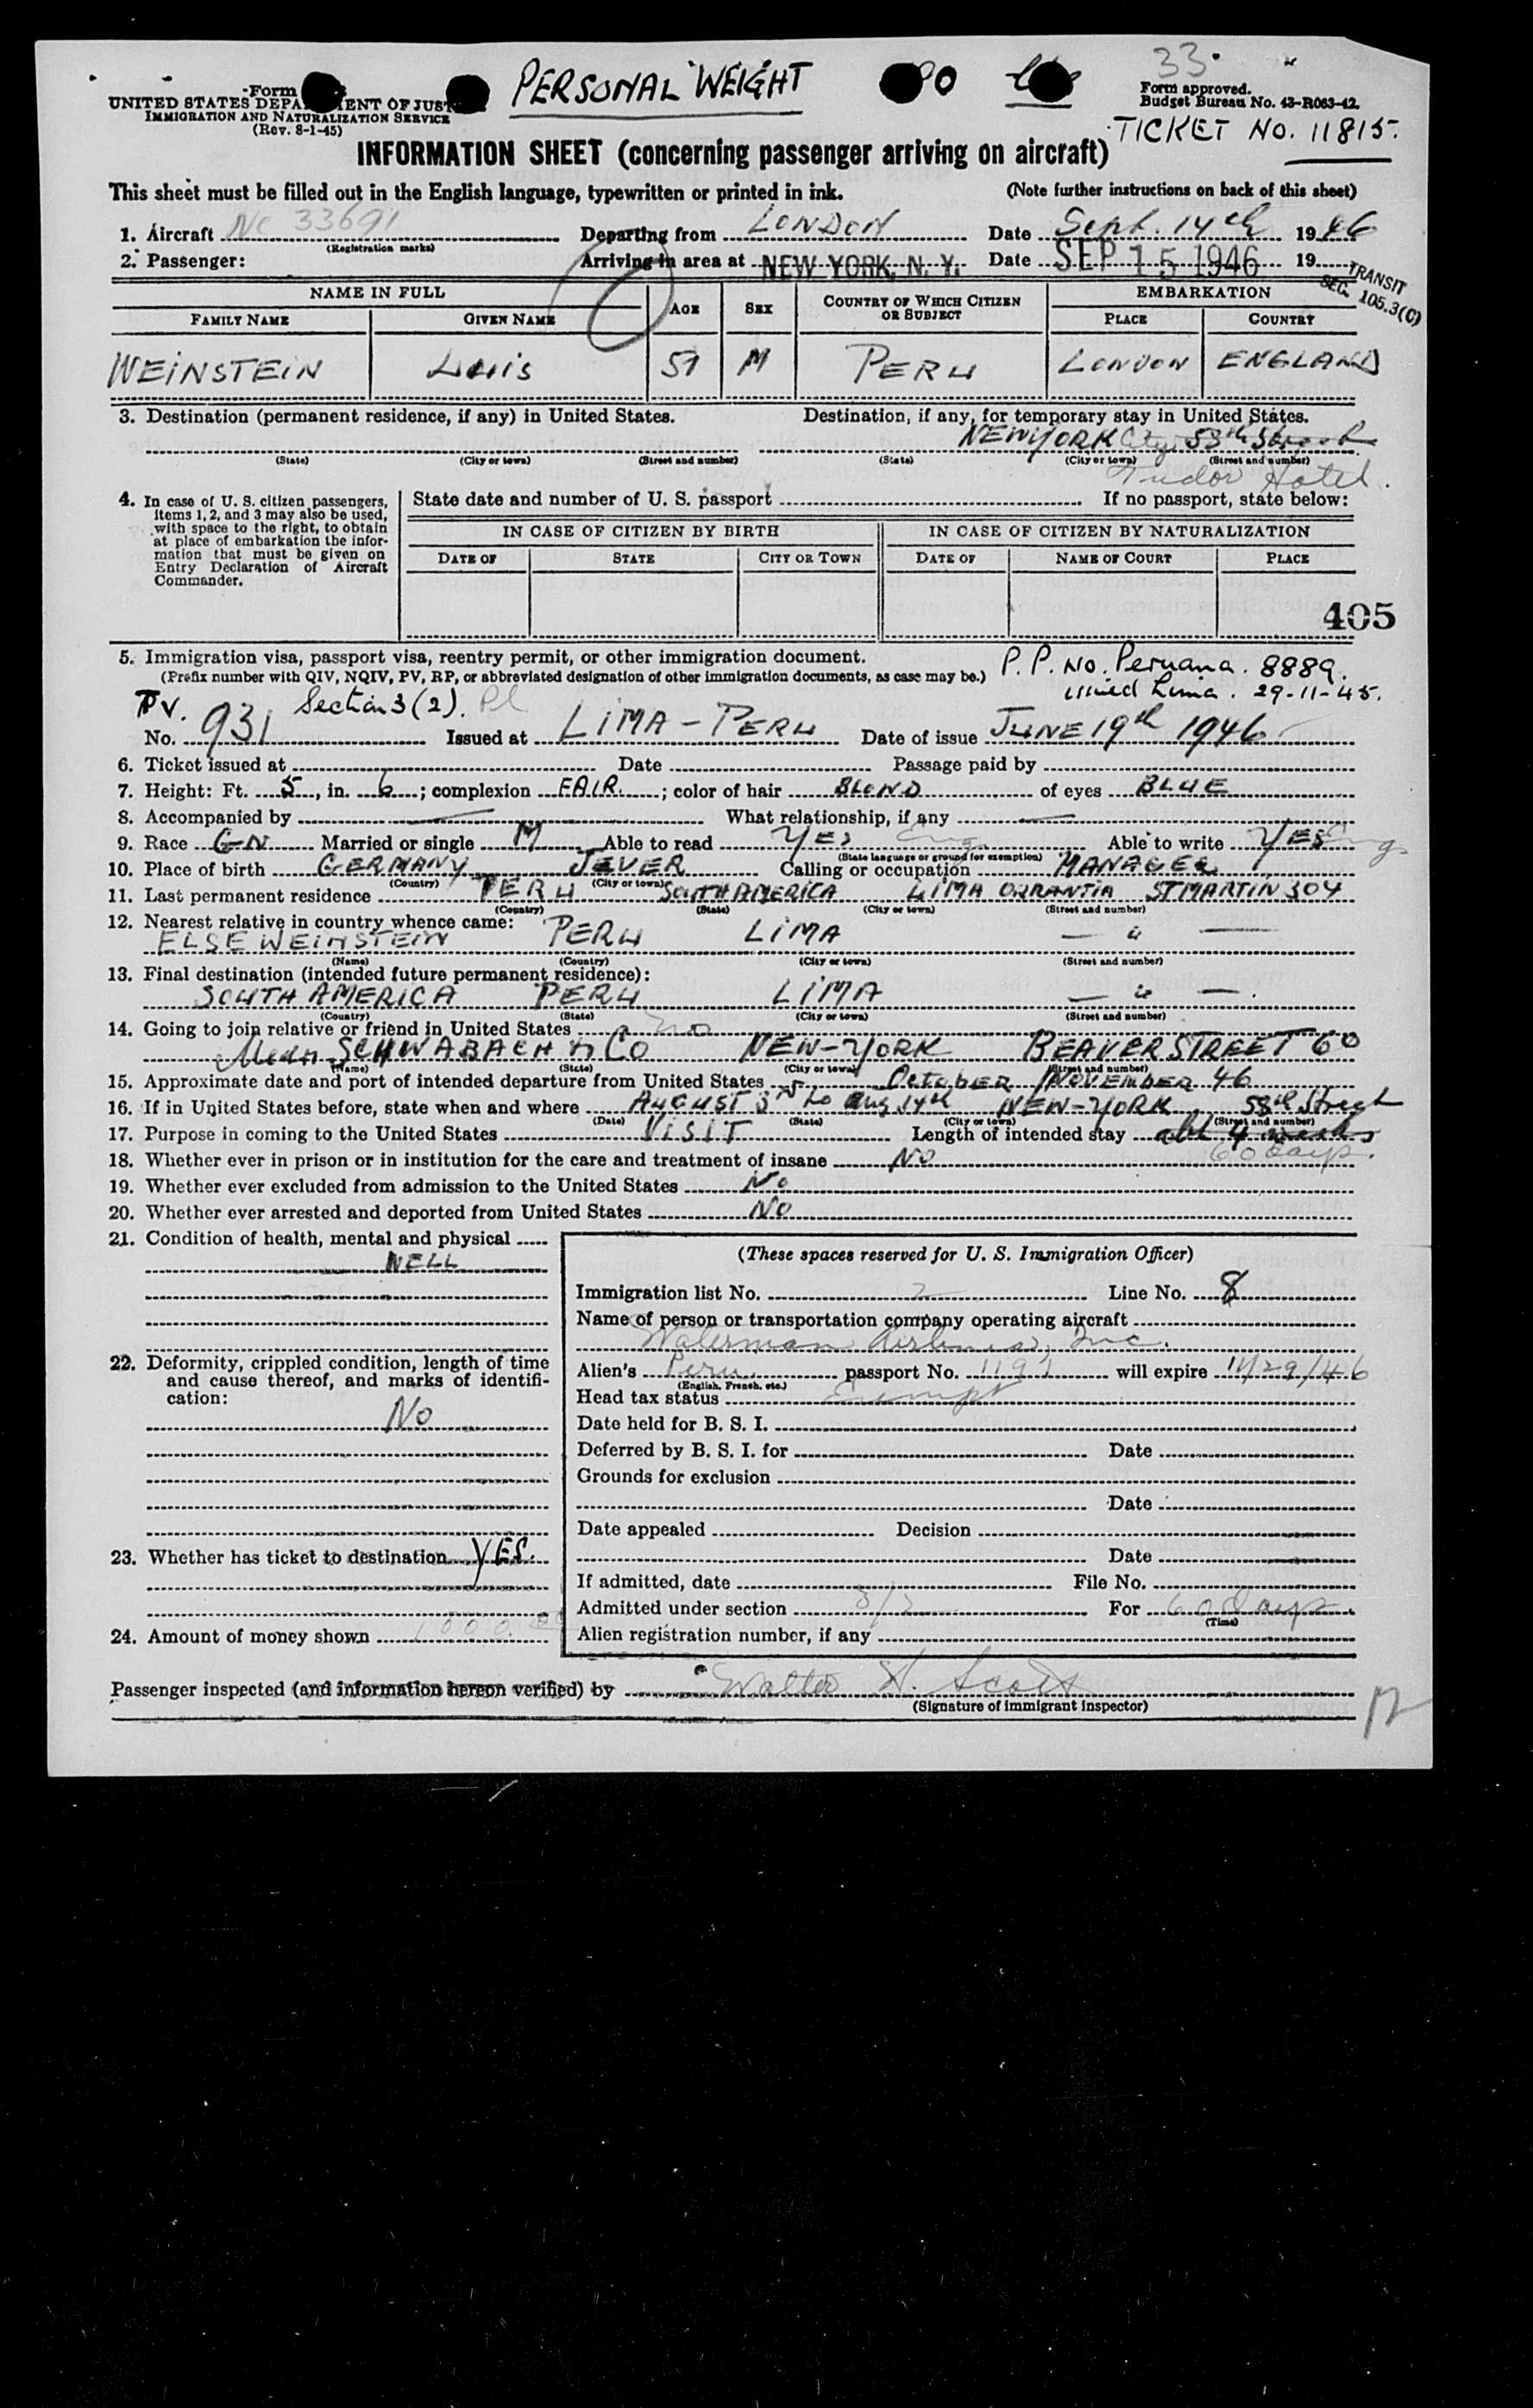 Form
PERSONAL WEIGHT
33
UNITED STATES DEPA ENT OF JUST
IMMIGRATION AND NATURALIZATION SERVICE
(Rev. 8-1-45)
Form approved.
Budget Bureau No. 43-R063-42.
TICKET No. 11815.
INFORMATION SHEET (concerning passenger arriving on aircraft)
This sheet must be filled out in the English language, typewritten or printed in ink. (Note further instructions on back of this sheet)
1. Aircraft NC 33691 Departing from LONDON Date Sept. 14th 1946
(Registration marks)
2. Passenger: Arriving in area at NEW YORK, N. Y. Date SEP 15 1946 19
TRANSIT
SEC. 105.3(C)
NAME IN FULL AGE SEX COUNTRY OF WHICH CITIZEN OR SUBJECT EMBARKATION
FAMILY NAME GIVEN NAME PLACE COUNTRY
WEINSTEIN LUIS 51 M PERU LONDON ENGLAND
3. Destination (permanent residence, if any) in United States. Destination, if any, for temporary stay in United States.
NEW YORK City 58th Street
(State) (City or town) (Street and number) (State) (City or town) (Street and number)
Tudor Hotel.
4. In case of U. S. citizen passengers, items 1, 2, and 3 may also be used, with space to the right, to obtain at place of embarkation the information that must be given on Entry Declaration of Aircraft Commander.
State date and number of U. S. passport If no passport, state below:
IN CASE OF CITIZEN BY BIRTH IN CASE OF CITIZEN BY NATURALIZATION
DATE OF STATE CITY OR TOWN DATE OF NAME OF COURT PLACE
405
5. Immigration visa, passport visa, reentry permit, or other immigration document.
(Prefix number with QIV, NQIV, PV, RP, or abbreviated designation of other immigration documents, as case may be.)
P.P. No. Peruana. 8889.
issued Lima. 29-11-45.
PV. Section 3(2).
No. 931 Issued at LIMA - PERU Date of issue JUNE 19th 1946
6. Ticket issued at Date Passage paid by
7. Height: Ft. 5, in. 6; complexion FAIR.; color of hair BLOND of eyes BLUE
8. Accompanied by — What relationship, if any —
9. Race GN Married or single M Able to read YES Eng. Able to write YES Eng
(State language or ground for exemption)
10. Place of birth GERMANY JEVER Calling or occupation MANAGER
(Country) (City or town)
11. Last permanent residence PERU SOUTH AMERICA LIMA ORRANTIA ST MARTIN 304
(Country) (State) (City or town) (Street and number)
12. Nearest relative in country whence came:
ELSE WEINSTEIN PERU LIMA — " —
(Name) (Country) (City or town) (Street and number)
13. Final destination (intended future permanent residence):
SOUTH AMERICA PERU LIMA — " —.
(Country) (State) (City or town) (Street and number)
14. Going to join relative or friend in United States no
SCHWABACH & CO NEW-YORK BEAVER STREET 60
(Name) (State) (City or town) (Street and number)
15. Approximate date and port of intended departure from United States OCTOBER / NOVEMBER 46
16. If in United States before, state when and where AUGUST 3rd to Aug 14th NEW-YORK 58th Street
(Date) (State) (City or town) (Street and number)
17. Purpose in coming to the United States VISIT Length of intended stay abt 4 weeks
60 days.
18. Whether ever in prison or in institution for the care and treatment of insane NO
19. Whether ever excluded from admission to the United States No
20. Whether ever arrested and deported from United States NO
21. Condition of health, mental and physical
WELL
22. Deformity, crippled condition, length of time and cause thereof, and marks of identification:
No
23. Whether has ticket to destination YES.
24. Amount of money shown 1000.00
(These spaces reserved for U. S. Immigration Officer)
Immigration list No. 2 Line No. 8
Name of person or transportation company operating aircraft
Waterman Airlines, Inc.
Alien's Peru passport No. 1191 will expire 11/29/46
(English, French, etc.)
Head tax status Exempt
Date held for B. S. I.
Deferred by B. S. I. for Date
Grounds for exclusion
Date
Date appealed Decision
Date
If admitted, date File No.
Admitted under section 3/2 For 60 days
(Time)
Alien registration number, if any
Passenger inspected (and information hereon verified) by Walter H. Scott
(Signature of immigrant inspector)